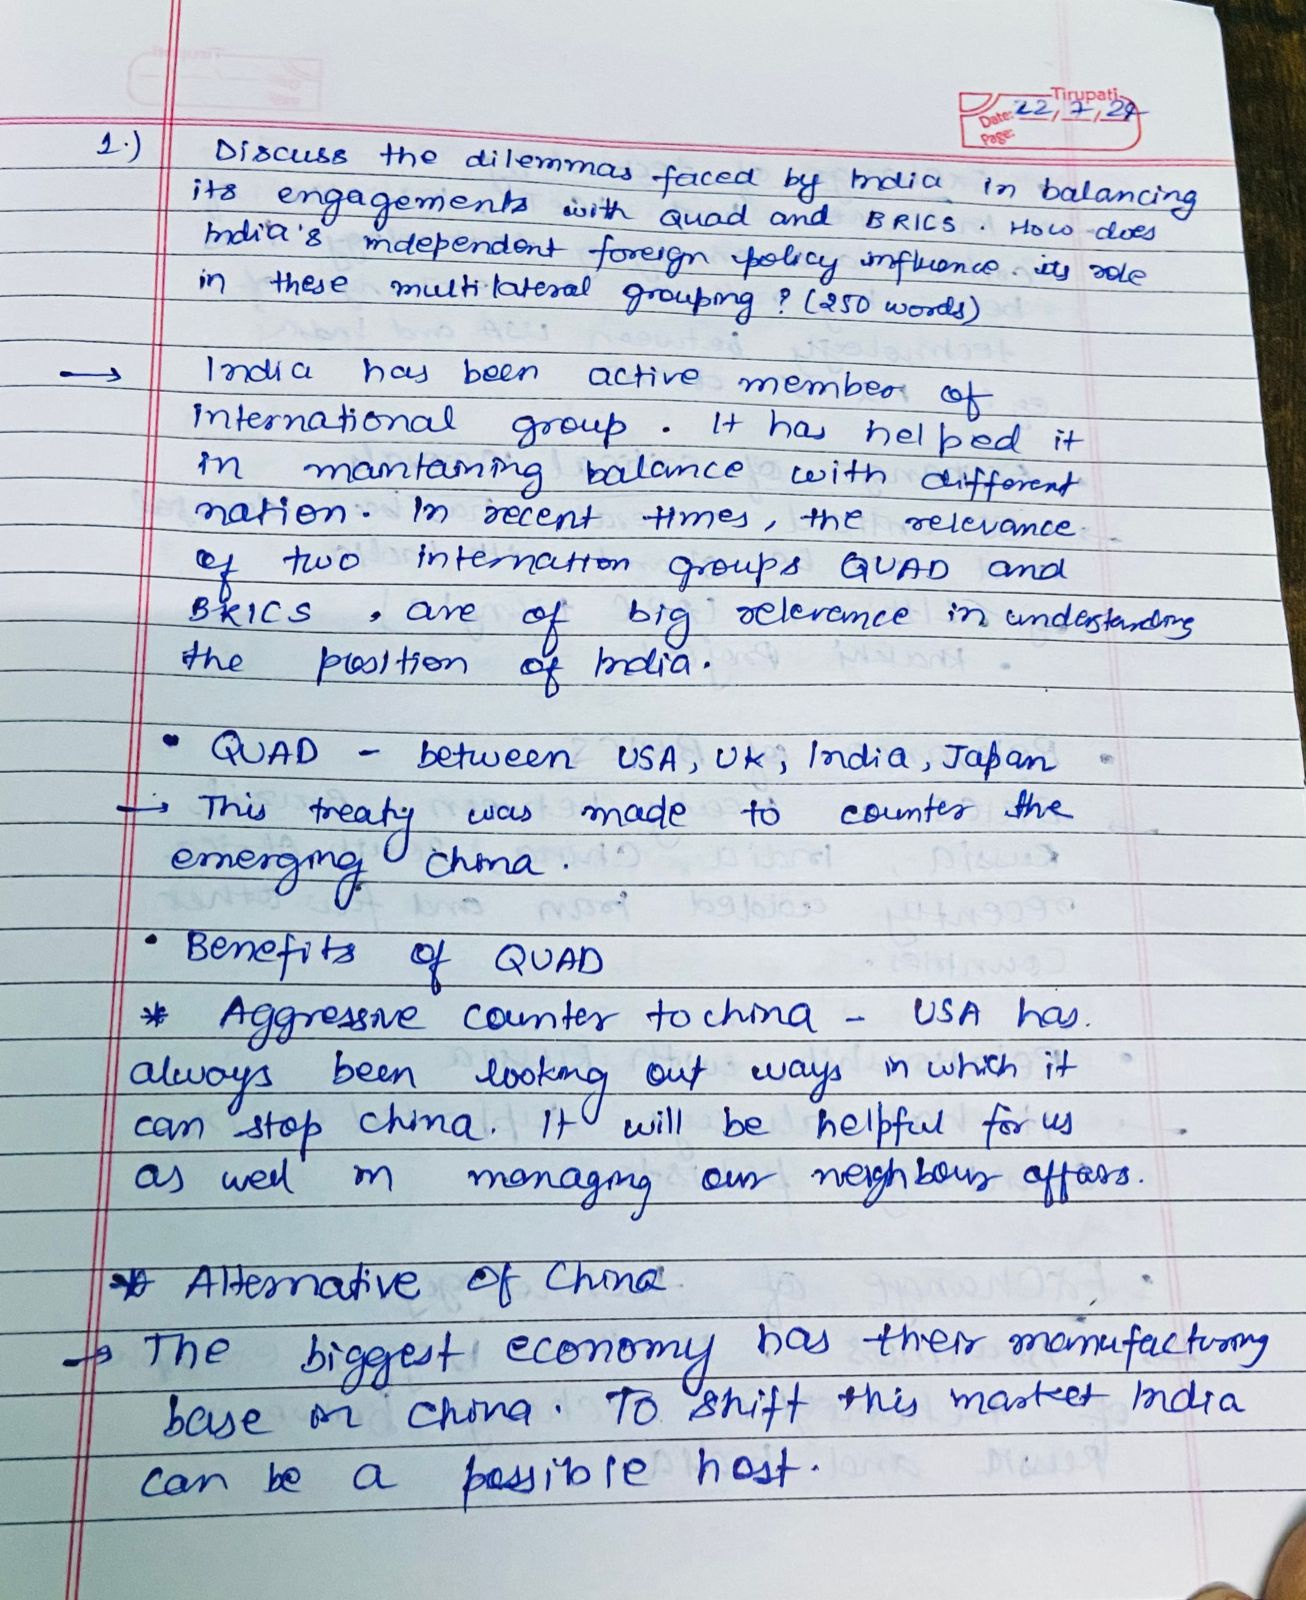 Tirupati
Date: 22, 7, 24
Page:
1.) Discuss the dilemmas faced by India in balancing
its engagements with Quad and BRICS. How does
India's independent foreign policy influence its role
in these multilateral grouping? (250 words)
→ India has been active member of
international group. It has helped it
in maintaining balance with different
nation. In recent times, the relevance
of two internation groups QUAD and
BRICS, are of big relevance in understanding
the position of India.
• QUAD - between USA, UK, India, Japan
→ This treaty was made to counter the
emerging china.
• Benefits of QUAD
* Aggressive counter to china - USA has
always been looking out ways in which it
can stop china. It will be helpful for us
as well in managing our neighbour affairs.
* Alternative of China
→ The biggest economy has their manufacturing
base in china. To shift this market India
can be a possible host.